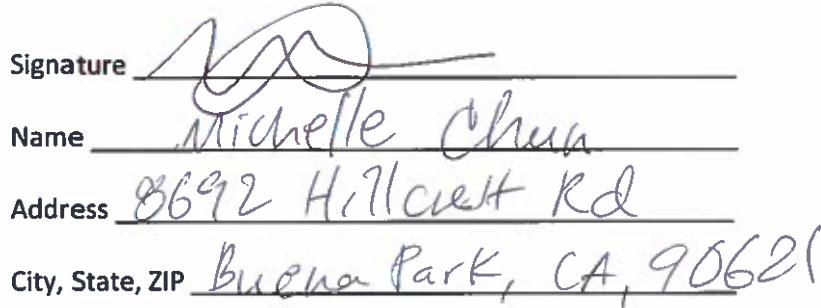 Signature
Name Michelle Chun
Address 8692 Hillcrest Rd
City, State, ZIP Buena Park, CA, 90621